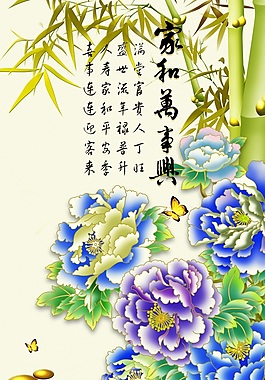 家和萬事興
满堂富貴人丁旺
盛世流年禄普升
人寿家和平安季
喜事連連迎客来